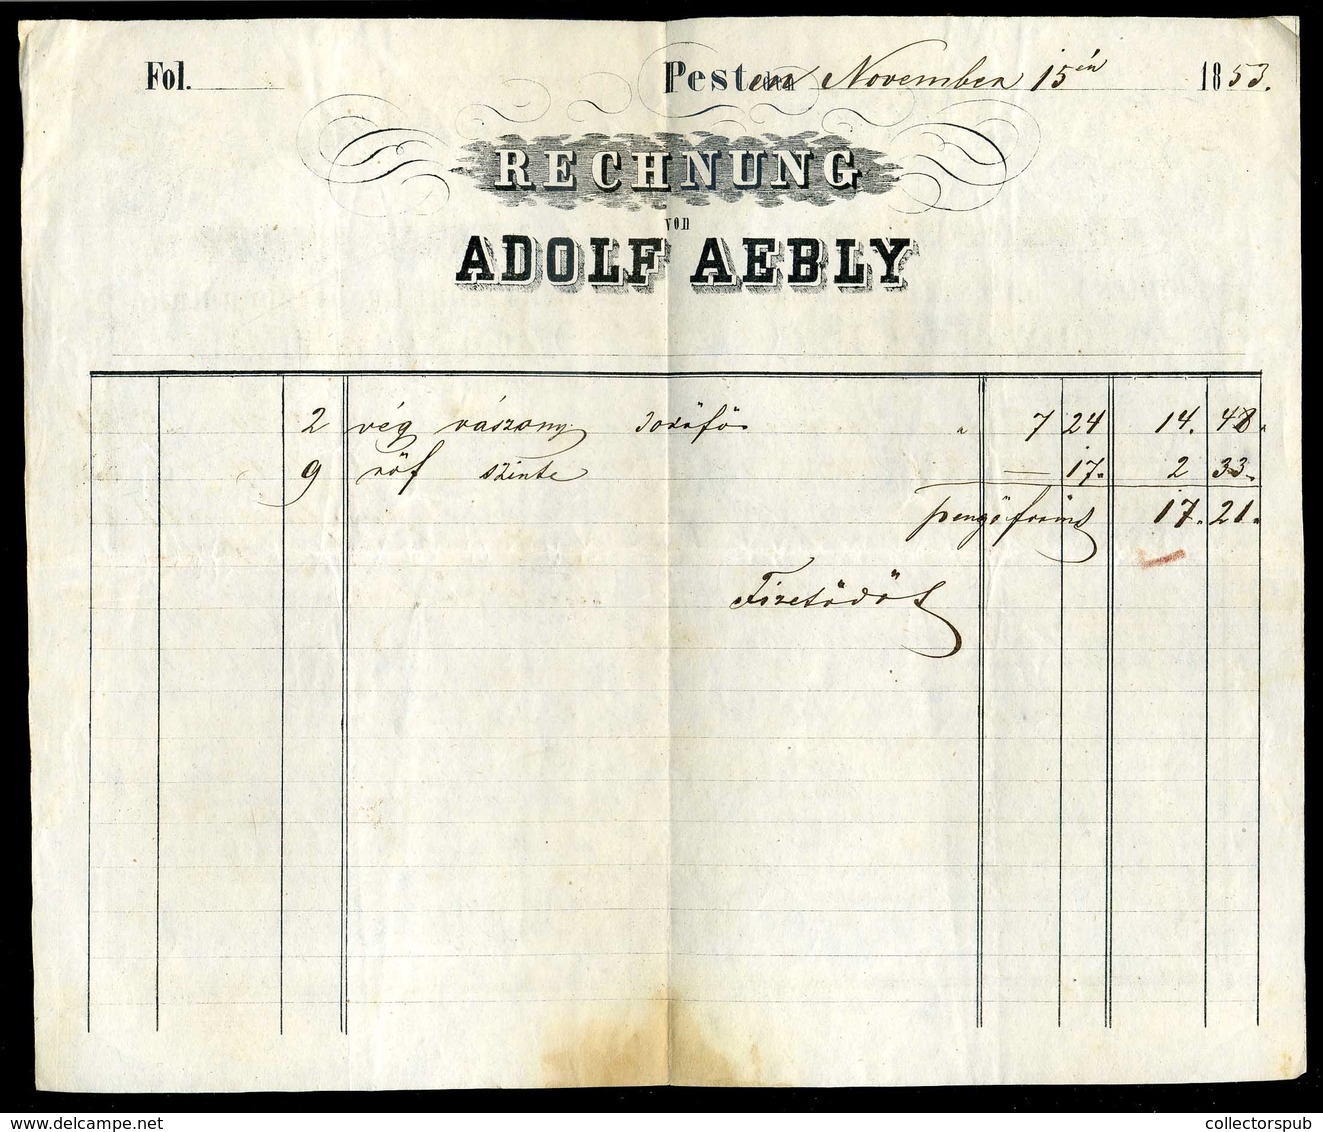 Fol. Pesten November 15én 1853.
RECHNUNG
von
ADOLF AEBLY
2 vég vászony 30röfös " 7 24 14. 48.
9 röf szinte = 17. 2 33.
pengőforint 17. 21.
Fizetődöt
collectorspub